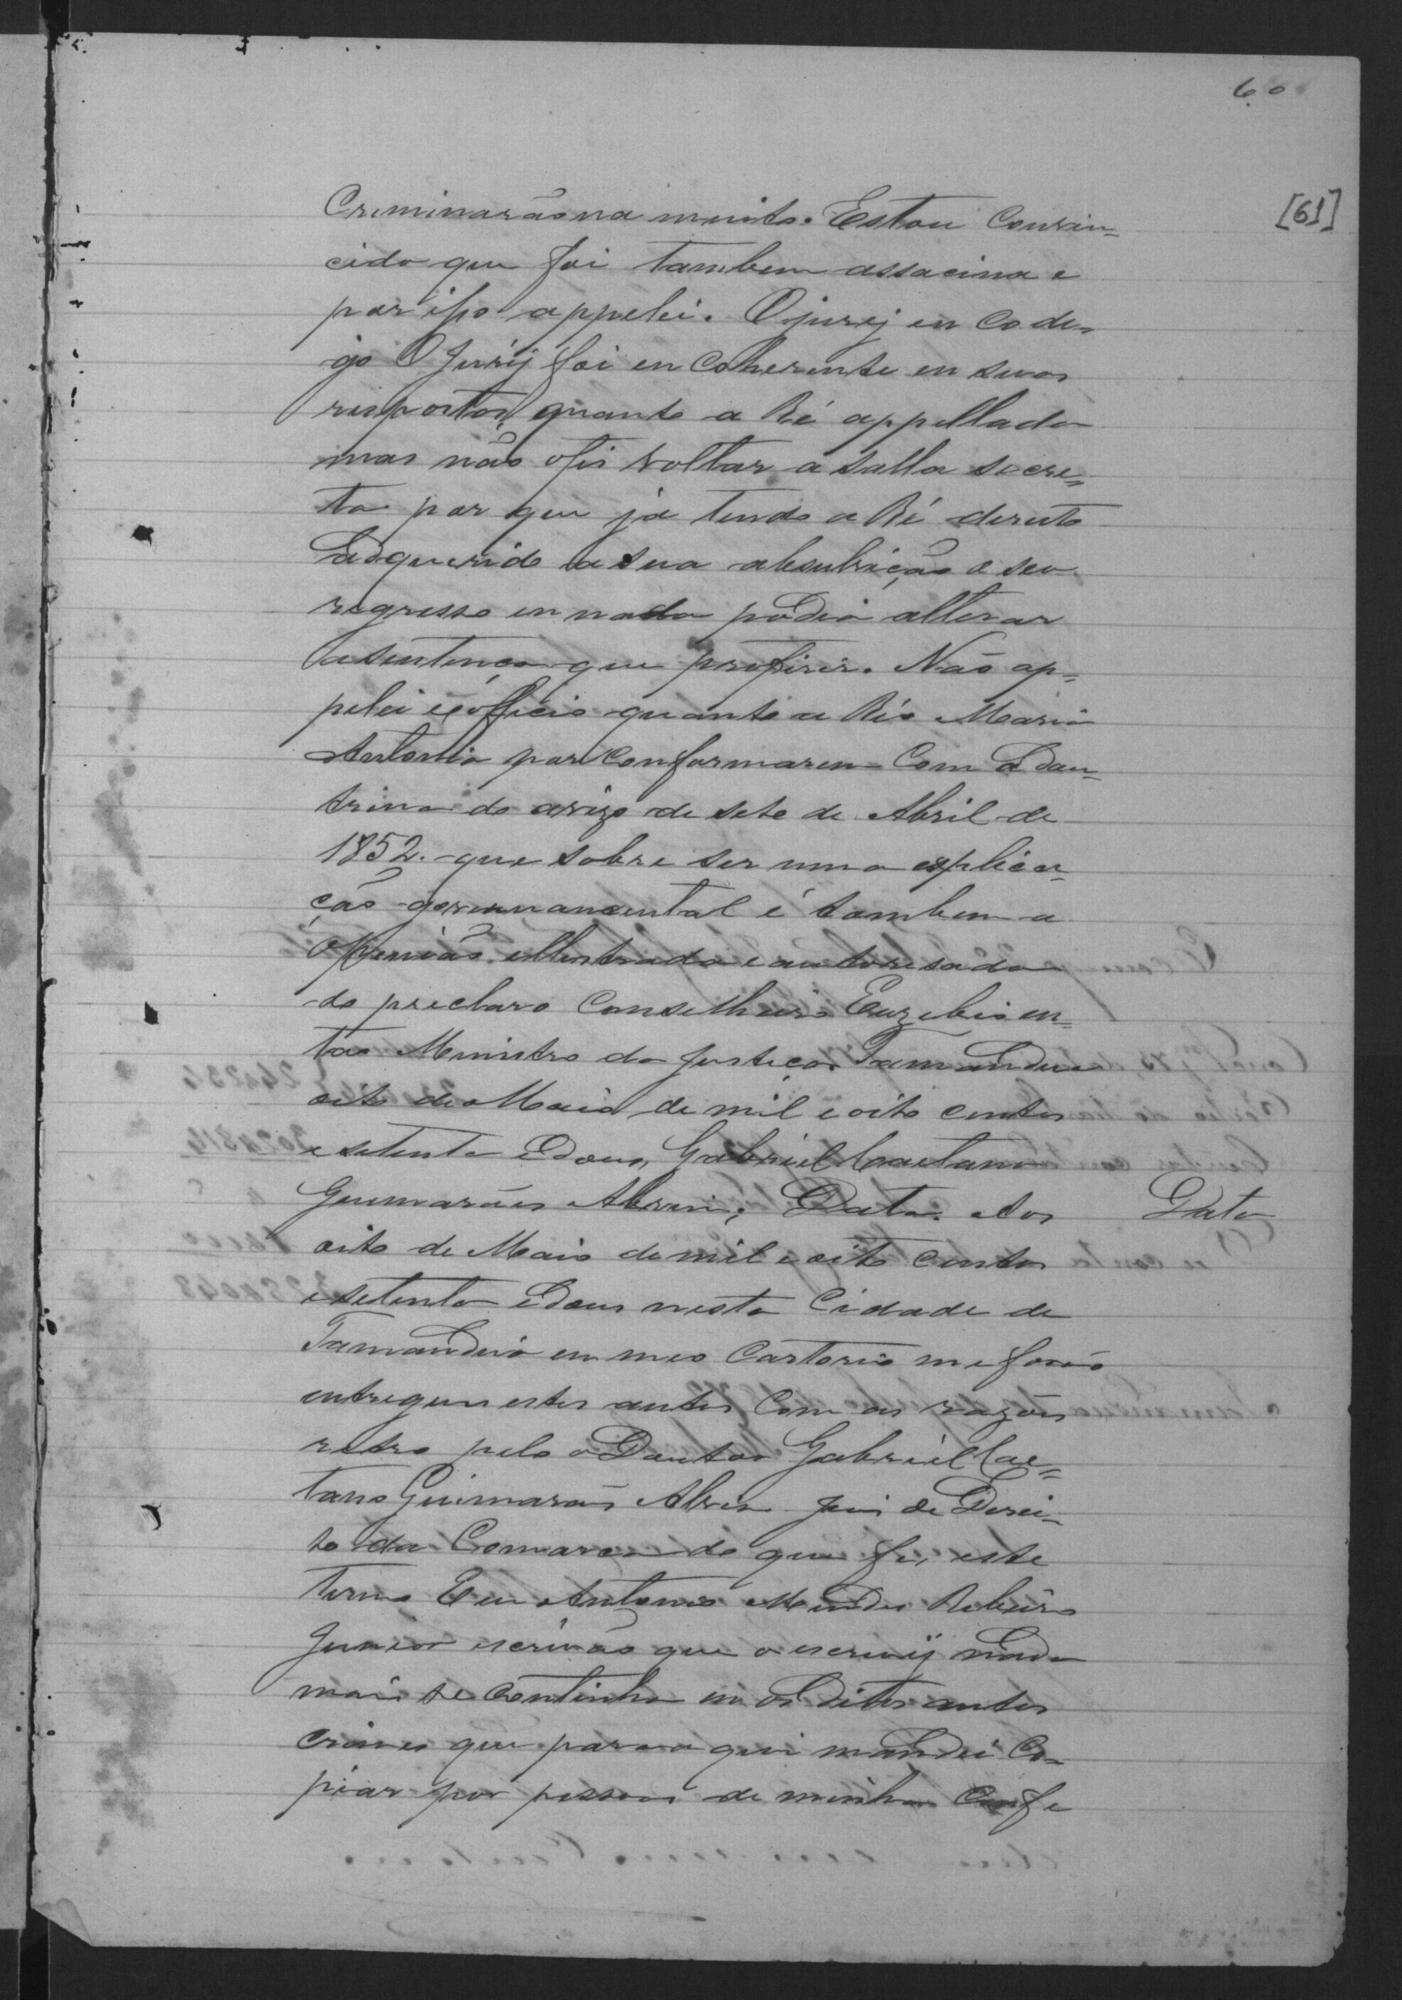 60
[61]
Creminarãona muito. Estou Convin=
cido que foi tambem assacina e
por ipso appelei. O jurij en Code-
go O Jurij foi en Coherente en suas
respostas, quanto a Ré appellada
mas não ofis voltar a salla secre=
ta por que já tendo a Ré dereito
adquerido a sua absulvição o seu
regresso en nada podia alterar
a sentença que proferir. Não ap=
pelei exofficio quanto a Ré Maria
Antonia por Conformaren Com a Dou=
trina do avizo de sete de Abril de
1852. que sobre ser uma esplica=
ção governamental é tambem a
openião ellustrada e autoresada
do preclaro Conselheiro Euzebio en=
tão Menistro da Justiça. Tamanduá
oito de Maio de mil e oito centos
e setenta e Dous, Gabriel Caetano
Guimarães Alves; Data. Aos
Data
oito de Maio de mil e oito centos
e setenta e Dous nesta Cidade de
Tamanduá en meo Cartorio me forão
entregues estes autos Com as razões
retro pelo o Doutor Gabriel Cae=
tano Guimarães Alves Juis de Derei=
to da Comarca do que fis este
termo Eu Antonio Mendes Ribeiro
Junior escrivão que o escrevij nada
mais se continha en os Ditos autos
crimes que para aqui mandei Co=
piar por pessoa de minha Confe